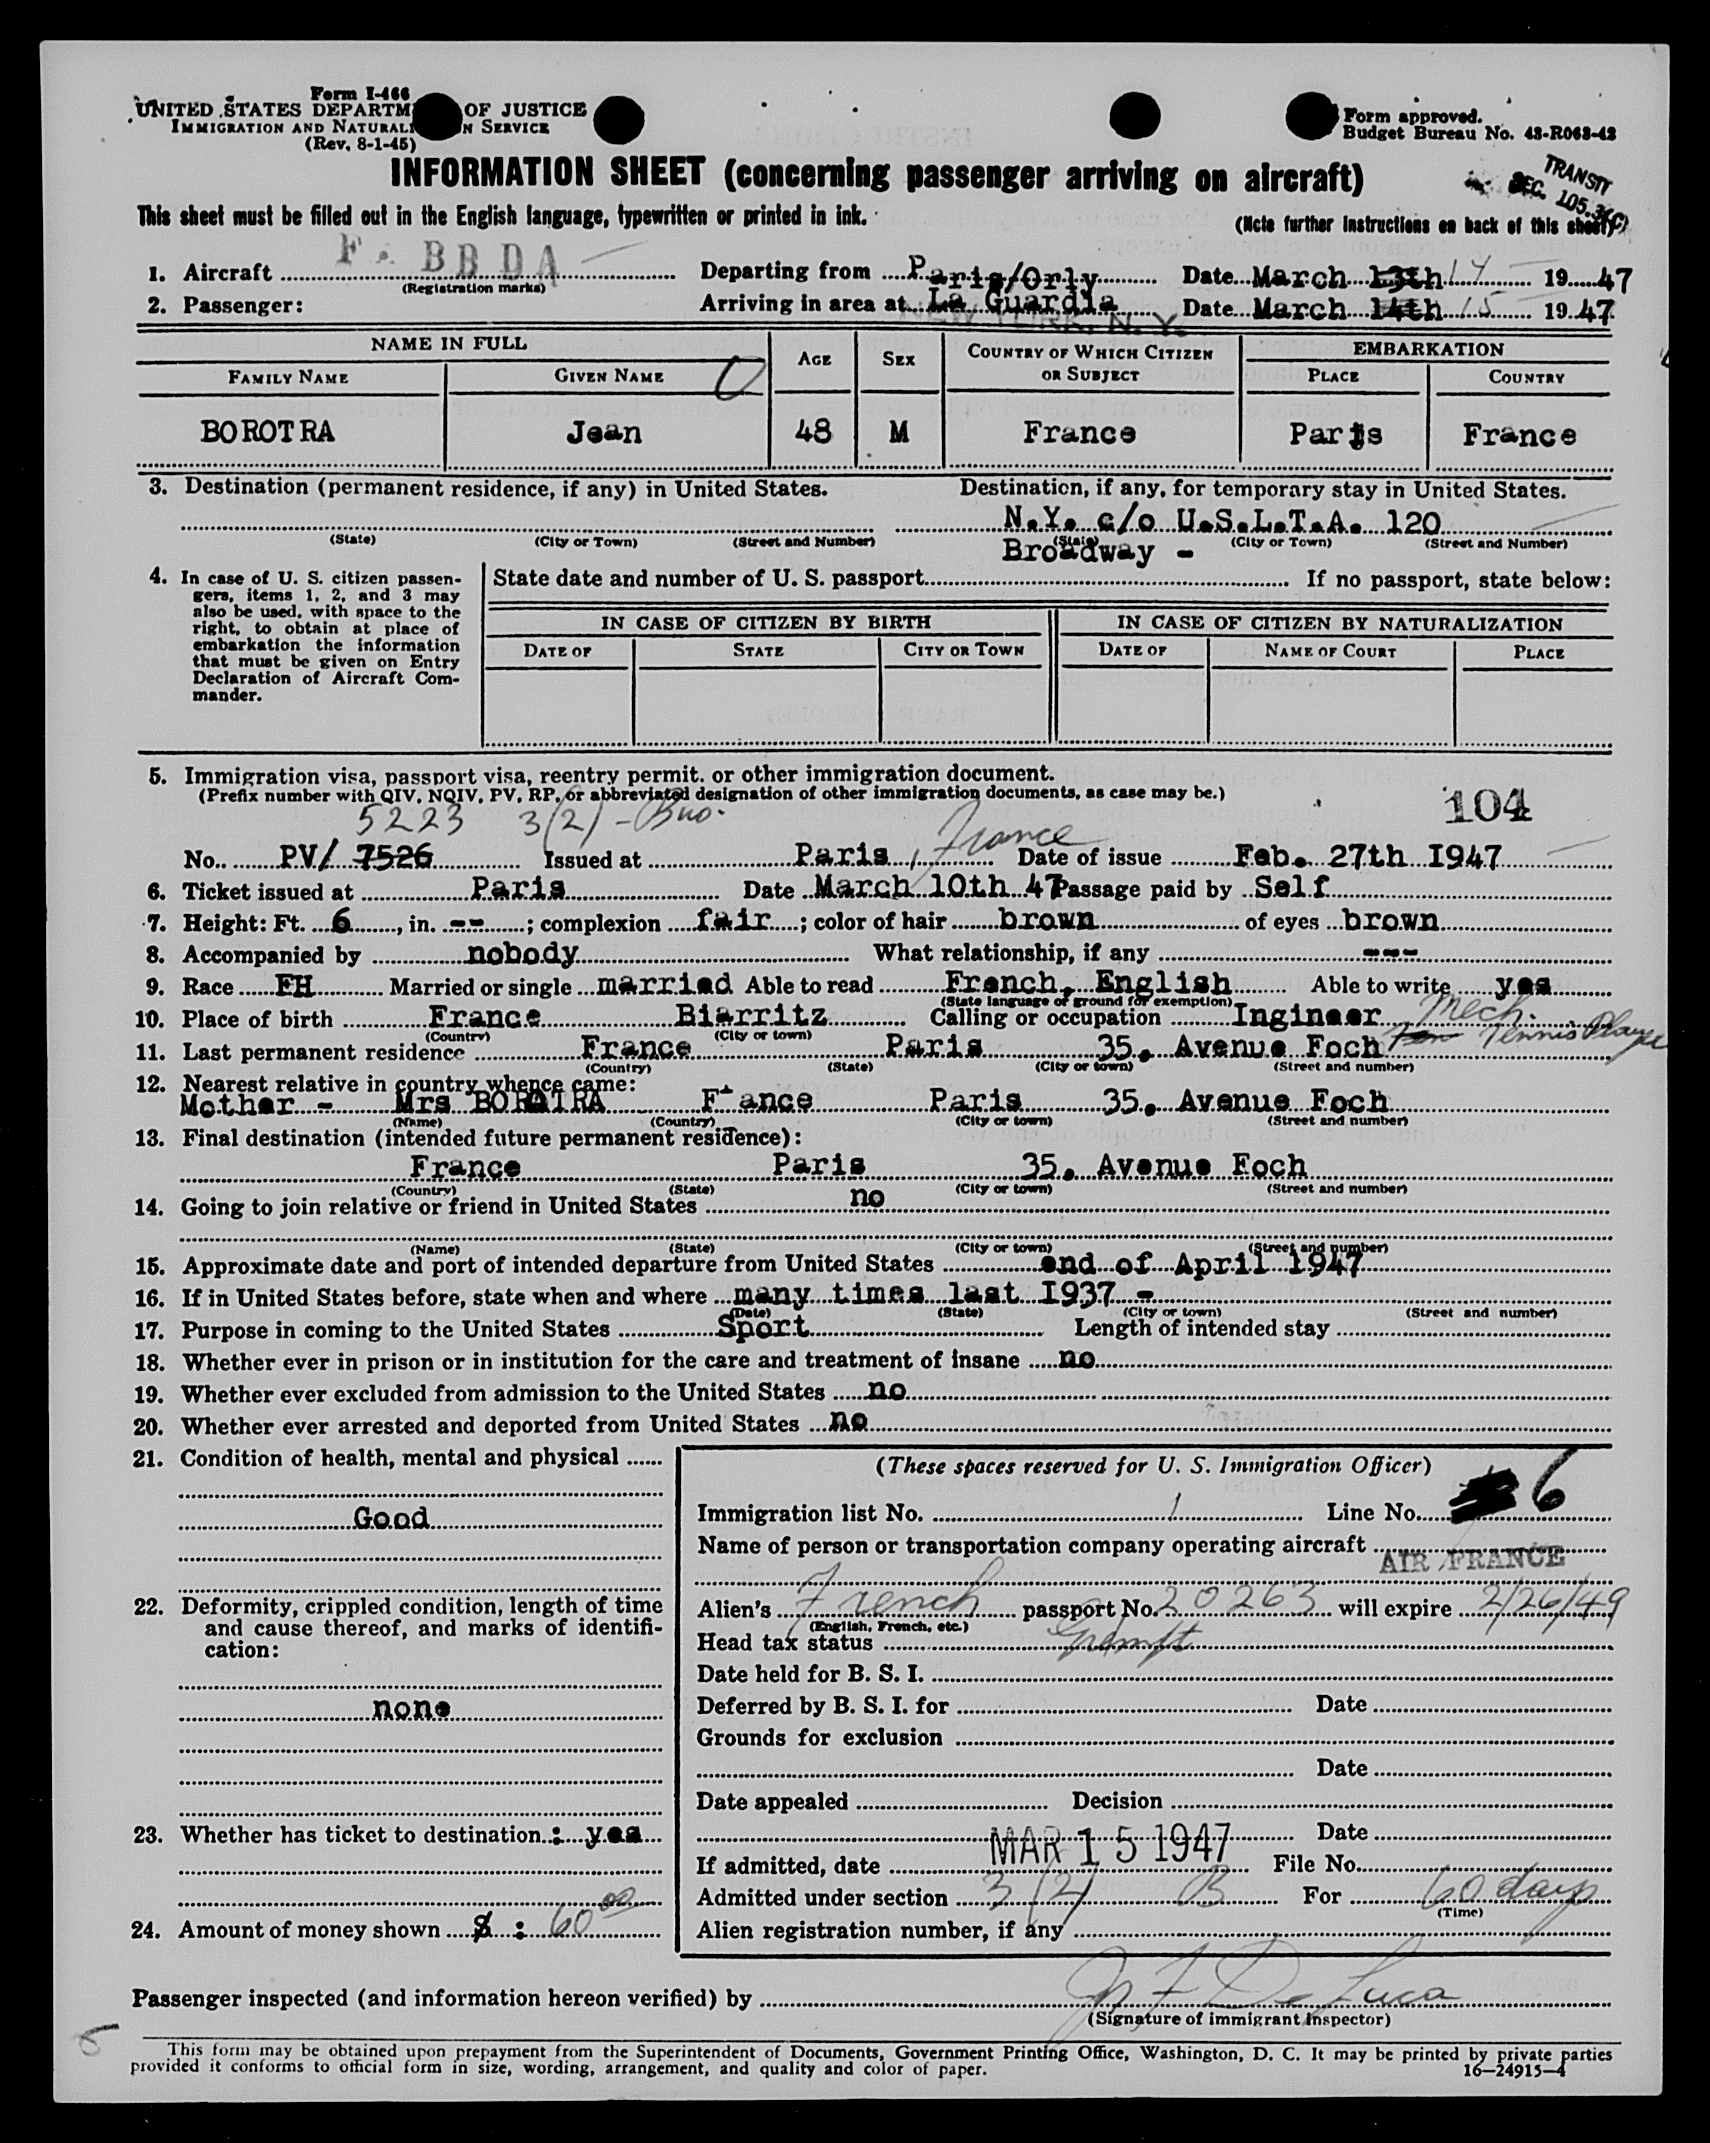 Form I-466
UNITED STATES DEPARTM OF JUSTICE
IMMIGRATION AND NATURALI N SERVICE
(Rev. 8-1-45)
Form approved.
Budget Bureau No. 43-R063-42
INFORMATION SHEET (concerning passenger arriving on aircraft)
TRANSIT
SEC. 105.3(C)
This sheet must be filled out in the English language, typewritten or printed in ink.
(Note further instructions on back of this sheet)
1. Aircraft F. BBDA Departing from Paris/Orly Date March 13th 14 1947
(Registration marks)
2. Passenger: Arriving in area at La Guardia Date March 14th 15 1947
NEW YORK, N. Y.
NAME IN FULL AGE SEX COUNTRY OF WHICH CITIZEN OR SUBJECT EMBARKATION
FAMILY NAME GIVEN NAME PLACE COUNTRY
BOROTRA Jean 48 M France Paris France
3. Destination (permanent residence, if any) in United States. Destination, if any, for temporary stay in United States.
N.Y. c/o U.S.L.T.A. 120
(State) (City or Town) (Street and Number) (State) (City or Town) (Street and Number)
Broadway -
4. In case of U. S. citizen passen-
gers, items 1, 2, and 3 may
also be used, with space to the
right, to obtain at place of
embarkation the information
that must be given on Entry
Declaration of Aircraft Com-
mander.
State date and number of U. S. passport If no passport, state below:
IN CASE OF CITIZEN BY BIRTH IN CASE OF CITIZEN BY NATURALIZATION
DATE OF STATE CITY OR TOWN DATE OF NAME OF COURT PLACE
5. Immigration visa, passport visa, reentry permit, or other immigration document.
(Prefix number with QIV, NQIV, PV, RP, or abbreviated designation of other immigration documents, as case may be.)
5223 3(2) - Bus. 104
No. PV/ 7526 Issued at Paris, France Date of issue Feb. 27th I947
6. Ticket issued at Paris Date March 10th 47 Passage paid by Self
7. Height: Ft. 6, in. --; complexion fair; color of hair brown of eyes brown
8. Accompanied by nobody What relationship, if any ---
9. Race FH Married or single married Able to read French, English Able to write yes
(State language or ground for exemption)
10. Place of birth France Biarritz Calling or occupation Ingineer Mech.
(Country) (City or town)
Tennis Player
11. Last permanent residence France Paris 35, Avenue Foch
(Country) (State) (City or town) (Street and number)
12. Nearest relative in country whence came:
Mother - Mrs BOROTRA France Paris 35, Avenue Foch
(Name) (Country) (City or town) (Street and number)
13. Final destination (intended future permanent residence):
France Paris 35, Avenue Foch
(Country) (State) (City or town) (Street and number)
14. Going to join relative or friend in United States no
(Name) (State) (City or town) (Street and number)
15. Approximate date and port of intended departure from United States end of April 1947
16. If in United States before, state when and where many times last I937 -
(Date) (State) (City or town) (Street and number)
17. Purpose in coming to the United States Sport Length of intended stay
18. Whether ever in prison or in institution for the care and treatment of insane no
19. Whether ever excluded from admission to the United States no
20. Whether ever arrested and deported from United States no
21. Condition of health, mental and physical
Good
22. Deformity, crippled condition, length of time
and cause thereof, and marks of identifi-
cation:
none
23. Whether has ticket to destination : yes
24. Amount of money shown $ : 60 00
(These spaces reserved for U. S. Immigration Officer)
Immigration list No. 1 Line No. 6
Name of person or transportation company operating aircraft
AIR FRANCE
Alien's French passport No. 20263 will expire 2/26/49
(English, French, etc.)
Head tax status Exempt
Date held for B. S. I.
Deferred by B. S. I. for Date
Grounds for exclusion
Date
Date appealed Decision
Date
If admitted, date MAR 15 1947 File No.
Admitted under section 3(2) B For 60 days
(Time)
Alien registration number, if any
Passenger inspected (and information hereon verified) by De Luca
(Signature of immigrant inspector)
This form may be obtained upon prepayment from the Superintendent of Documents, Government Printing Office, Washington, D. C. It may be printed by private parties
provided it conforms to official form in size, wording, arrangement, and quality and color of paper.
16—24915-4